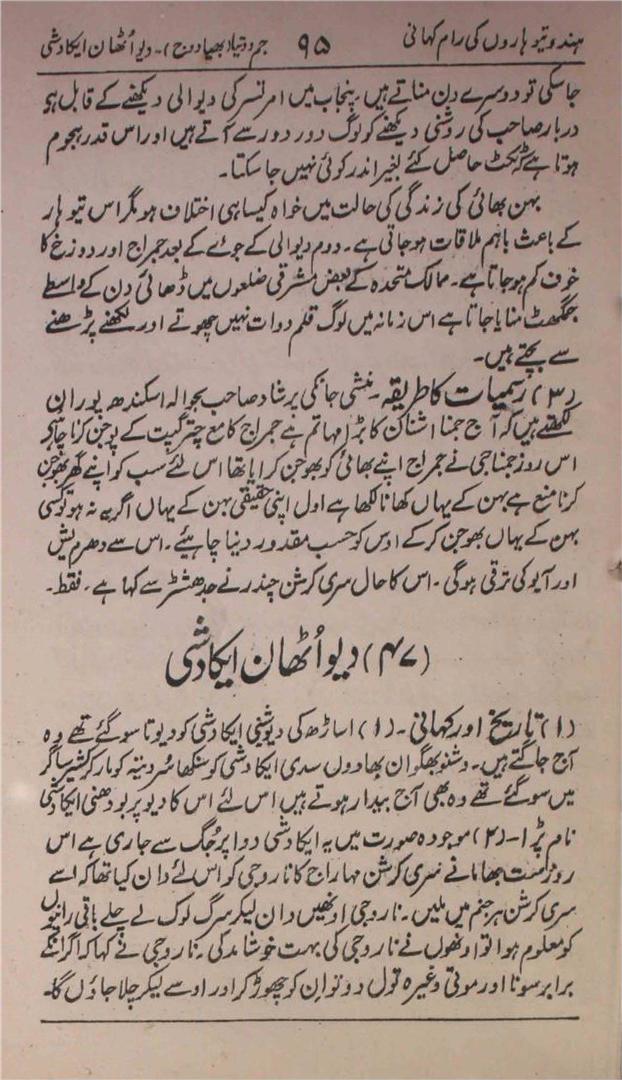 ہندو تیوہاروں کی رام کہانی ۹۵ جم دوتیا (بھیا دوج)۔ دیو اُٹھان ایکادشی
جاسکی تو دوسرے دن مناتے ہیں۔ پنجاب میں امرتسر کی دیوالی دیکھنے کے قابل ہو
دربار صاحب کی روشنی دیکھنے کو لوگ دور دور سے آتے ہیں اور اس قدر ہجوم
ہوتا ہے کہ ٹکٹ حاصل کئے بغیر اندر کوئی نہیں جا سکتا۔
بہن بھائی کی زندگی کی حالت میں خواہ کیسا ہی اختلاف ہو مگر اس تیوہار
کے باعث باہم ملاقات ہو جاتی ہے۔ دوم دیوالی کے جوئے کے بعد جمراج اور دوزخ کا
خوف کم ہو جاتا ہے۔ ممالک متحدہ کے بعض مشرقی ضلعوں میں ڈھائی دن کے واسطے
جمگھٹ منایا جاتا ہے اس زمانہ میں لوگ قلم دوات نہیں چھوتے اور لکھنے پڑھنے
سے بچتے ہیں۔
(۳) رسمیات کا طریقہ۔ منشی جانکی پرشاد صاحب بحوالہ اسکندھ پوران
لکھتے ہیں کہ آج جمنا اشنان کا بڑا مہاتم ہے جمراج کا مع چترگپت کے پوجن کرنا چاہئے
اس روز جمناجی نے جمراج اپنے بھائی کو بھوجن کرایا تھا اس لئے سب کو اپنے گھر بھوجن
کرنا منع ہے بہن کے یہاں کھانا لکھا ہے اول اپنی حقیقی بہن کے یہاں اگر یہ نہ ہو تو کسی
بہن کے یہاں بھوجن کر کے اوس کو حسب مقدور دینا چاہیئے۔ اس سے دھرم یش
اور آیو کی ترقی ہوگی۔ اس کا حال سری کرشن چندر نے جدھشٹر سے کہا ہے۔ فقط۔
(۴۷) دیو اُٹھان ایکادشی
(۱) تاریخ اور کہانی۔ (۱) اساڑھ کی دیوشینی ایکادشی کو دیوتا سو گئے تھے وہ
آج جاگتے ہیں۔ وشنو بھگوان بھادوں سدی ایکادشی کو سنکھاسُر دیتیہ کو مار کر کشیر ساگر
میں سو گئے تھے وہ بھی آج بیدار ہوتے ہیں اس لئے اس کا دیو پربودھنی ایکادشی
نام پڑا۔ (۲) موجودہ صورت میں یہ ایکادشی دواپر جُگ سے جاری ہے اس
روز ست بھاما نے سری کرشن مہاراج کا ناروجی کو اس لئے دان کیا تھا کہ اسے
سری کرشن ہر جنم میں ملیں۔ ناروجی اونھیں دان لیکر سرگ لوک لے چلے باقی رانیوں
کو معلوم ہوا تو اونھوں نے ناروجی کی بہت خوشامد کی۔ ناروجی نے کہا کہ اگر انکے
برابر سونا اور موتی وغیرہ تول دو تو ان کو چھوڑ کر اور اوسے لیکر چلا جاؤں گا۔